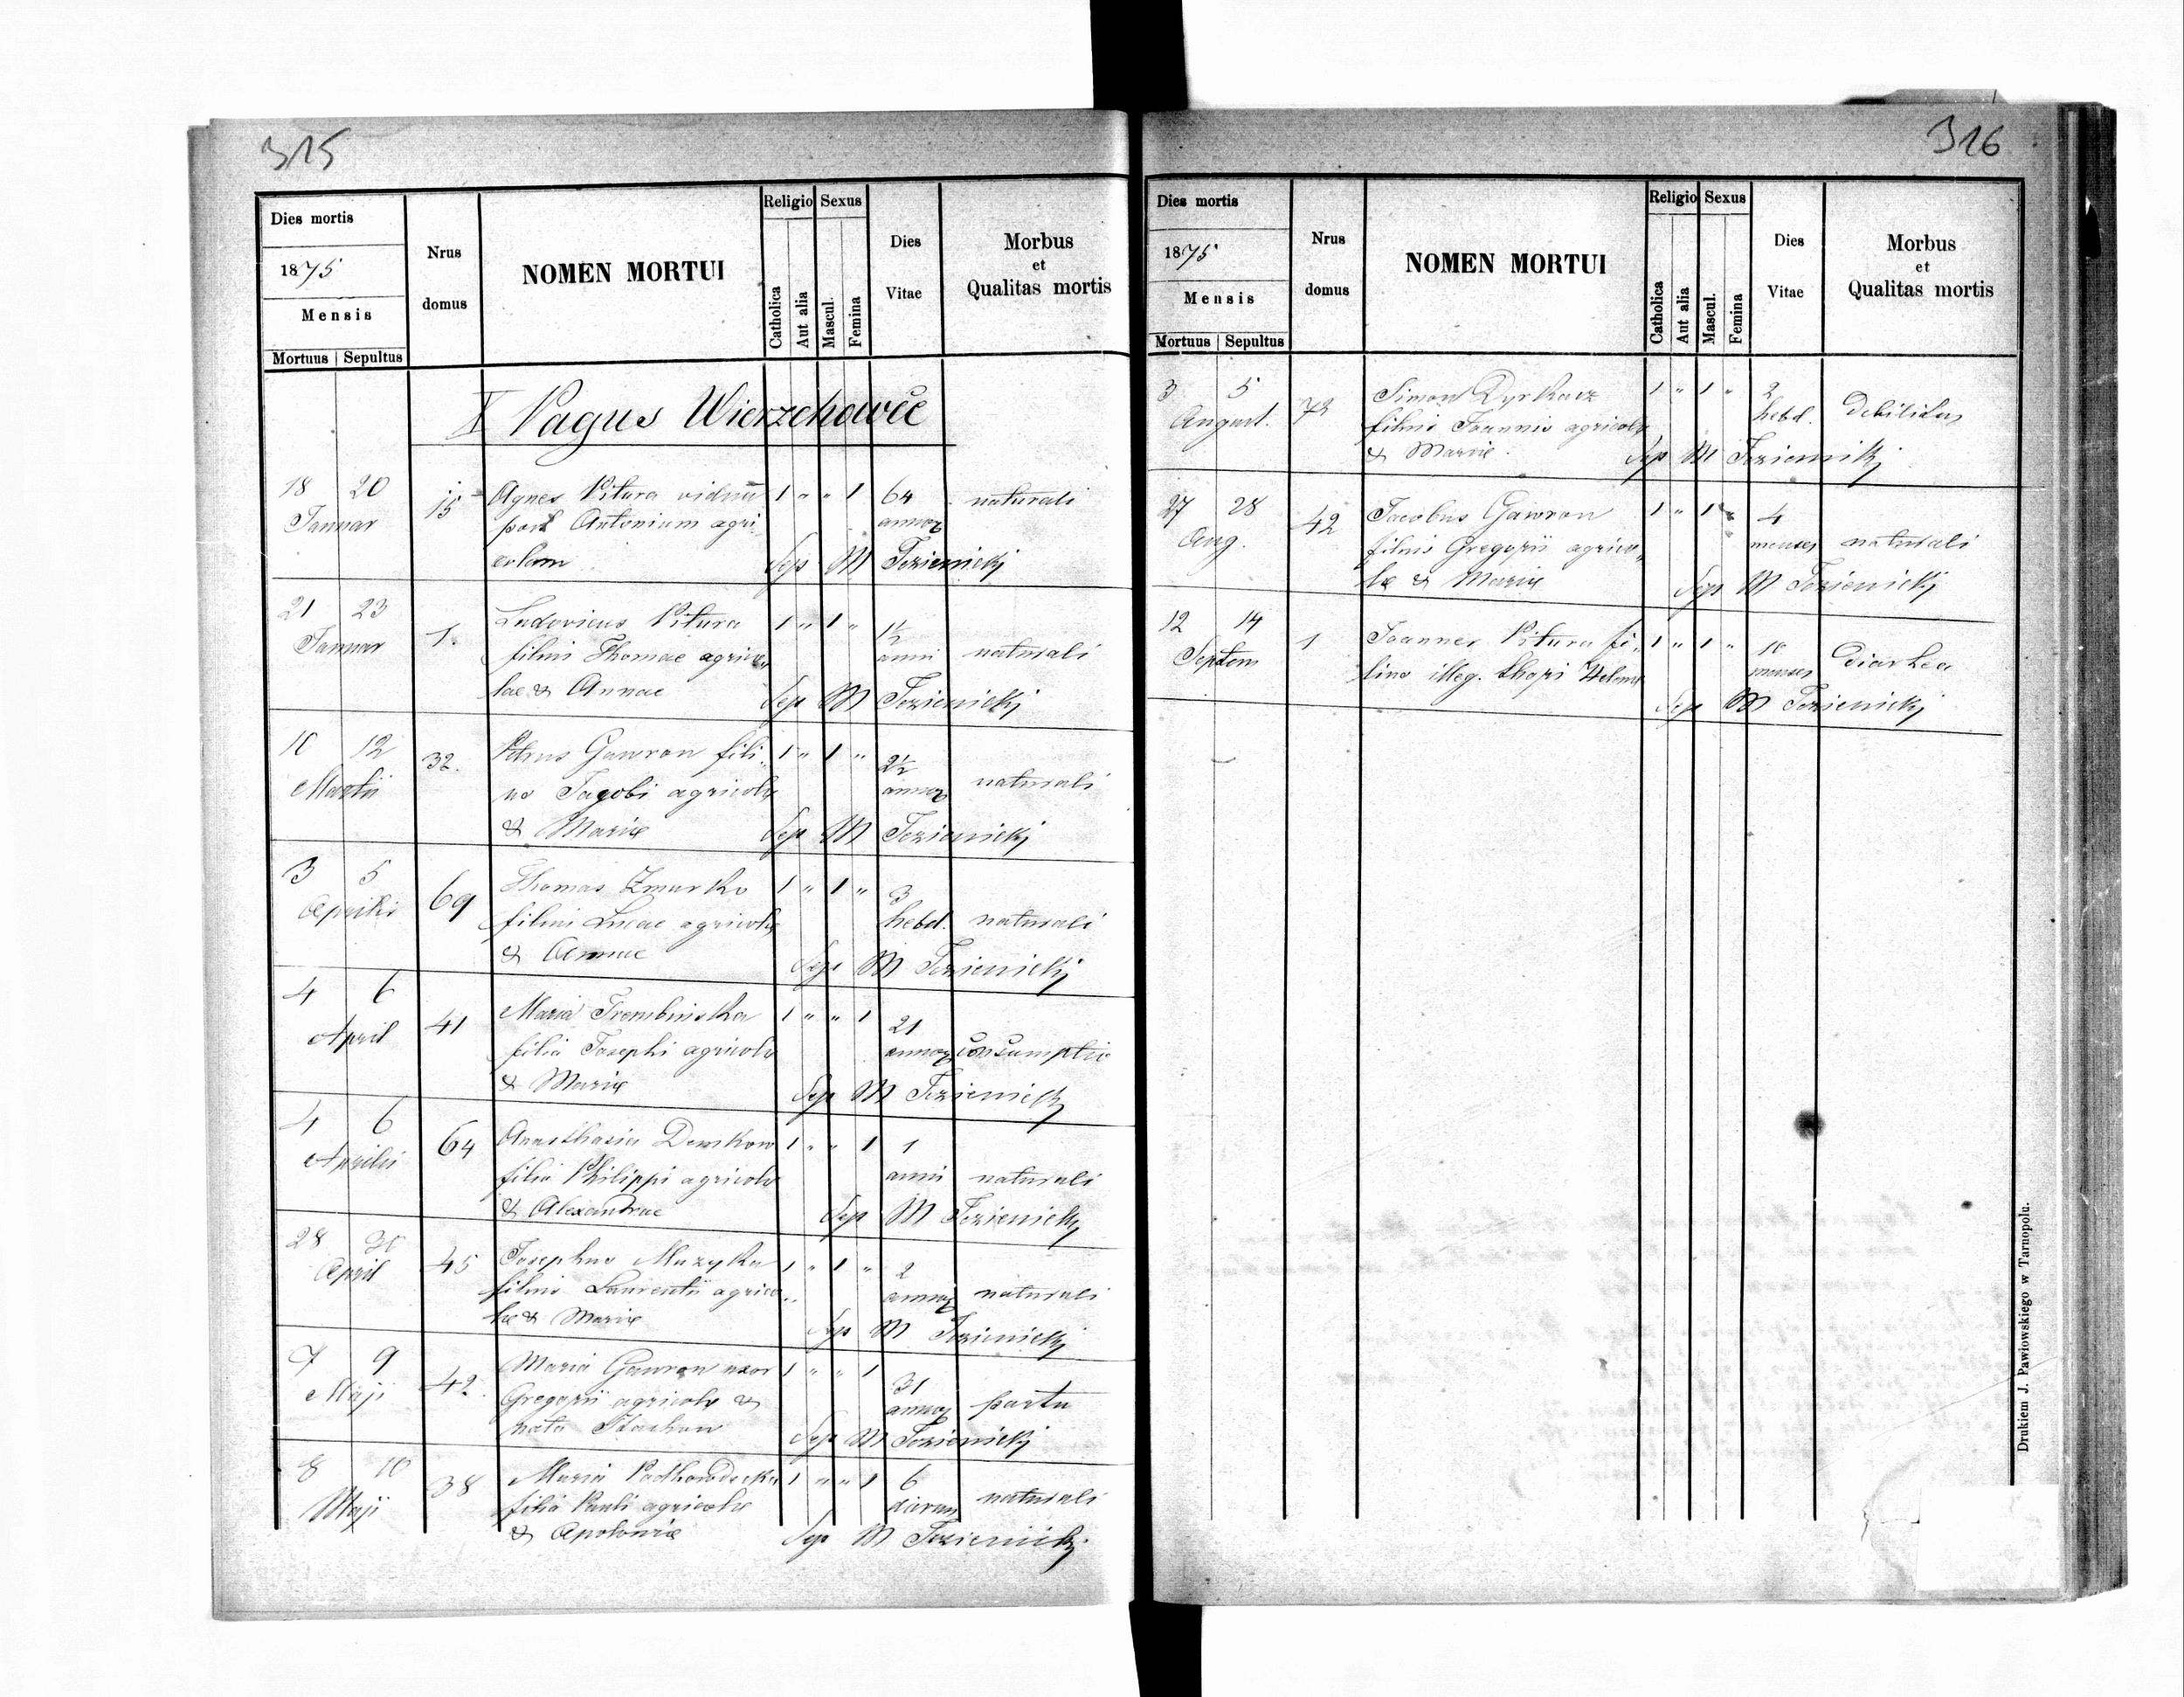 315
Dies mortis
1875
Mensis
Mortuus Sepultus
Nrus domus
NOMEN MORTUI
Religio
Catholica
Aut alia
Sexus
Mascul.
Femina
Dies Vitae
Morbus et Qualitas mortis
X Pagus Wierzchowce
18 20 15 Agnes Pitura vidua 1 " " 1 64 naturali
Januar post Antonium agri- annor
colam Sep M Jezienicki
21 23 1. Ludovicus Pitura 1 " 1 " 1½
Januar filius Thomae agrico- anni naturali
lae & Annae Sep M Jezienicki
10 12 32. Petrus Gawron fili- 1 " 1 " 2½
Martii us Jacobi agricolae annor naturali
& Mariae Sep M Jezienicki
3 5 69 Thomas Zmurko 1 " 1 " 3
Aprilis filius Lucae agricolae hebd. naturali
& Annae Sep M Jezienicki
4 6 41 Maria Trembinska 1 " " 1 21
April filia Josephi agricolae annor consumptio
& Mariae Sep M Jezienicki
4 6 64 Anasthasia 1 " " 1 1
Aprilis filia Philippi agricolae anni naturali
& Alexandrae Sep M Jezienicki
28 30 45 Josephus Muzyka 1 " 1 " 2
April filius Laurentii agrico- annor naturali
lae & Mariae Sep M Jezienicki
7 9 42. Maria Gawron uxor 1 " " 1 31
Maji Gregorii agricolae & annor partu
nata Stachow Sep M Jezienicki
8 10 38 Maria 1 " " 1 6 naturali
Maji filia Pauli agricolae dierum
& Apoloniae Sep M Jezienicki
316
Dies mortis
1875
Mensis
Mortuus Sepultus
Nrus domus
NOMEN MORTUI
Religio
Catholica
Aut alia
Sexus
Mascul.
Femina
Dies Vitae
Morbus et Qualitas mortis
3 5 73 Simon Dyrkacz 1 " 1 " 2
August. filius Joannis agricolae hebd. debilitas
& Mariae. Sep M Jezienicki
27 28 42 Jacobus Gawron 1 " 1 " 4
Aug. filius Gregorii agrico- menses naturali
lae & Mariae Sep M Jezienicki
12 14 1 Joannes Pitura fi- 1 " 1 " 10
Septem lius illeg. thori Helenae menses diarhea
Sep M Jezienicki
Drukiem J. Pawłowskiego w Tarnopolu.